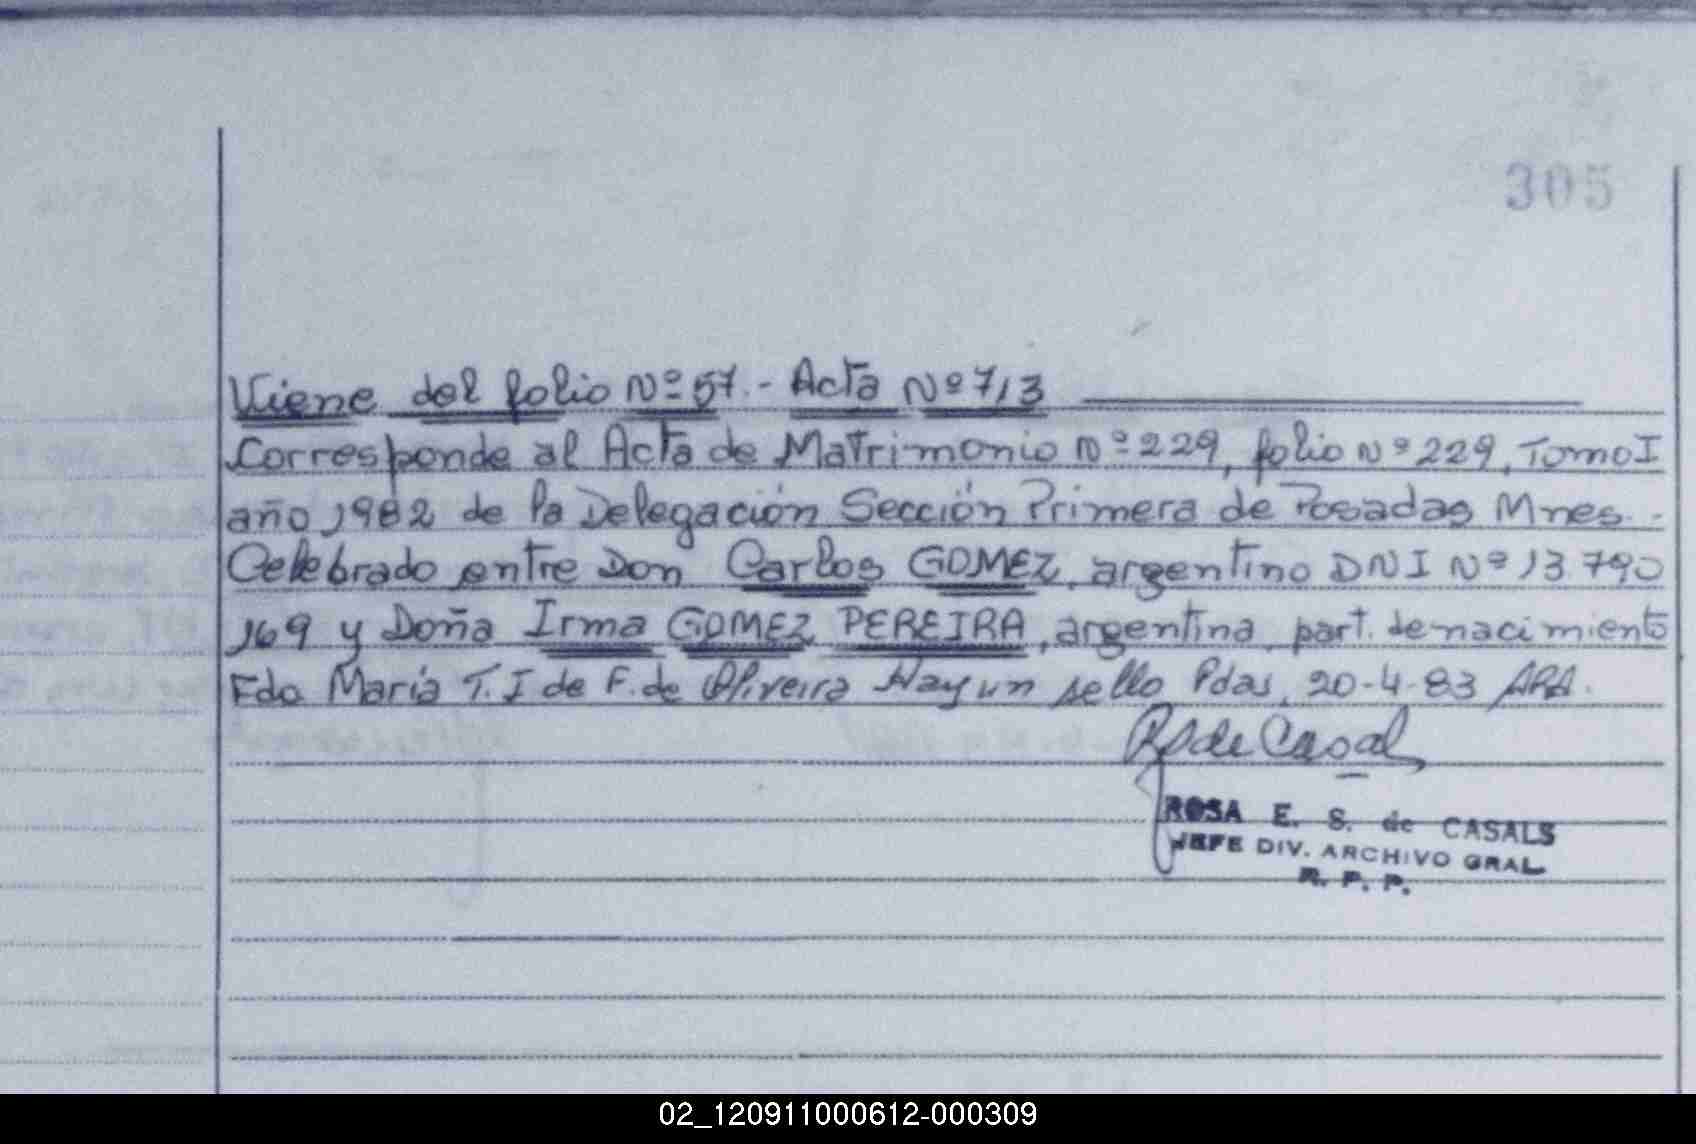 305
Viene del folio Nº 57.- Acta Nº 713
Corresponde al Acta de Matrimonio Nº 229, folio Nº 229, Tomo I
año 1982 de la Delegación Sección Primera de Posadas Mnes.-
Celebrado entre Don Carlos GOMEZ, argentino DNI Nº 13.790
169 y Doña Irma GOMEZ PEREIRA, argentina, part. de nacimiento
Fdo María T. I de F. de Oliveira Hay un sello Pdas, 20-4-83 ARA.
RSde Casal
ROSA E. S. de CASALS
JEFE DIV. ARCHIVO GRAL.
R. P. P.
02_120911000612-000309